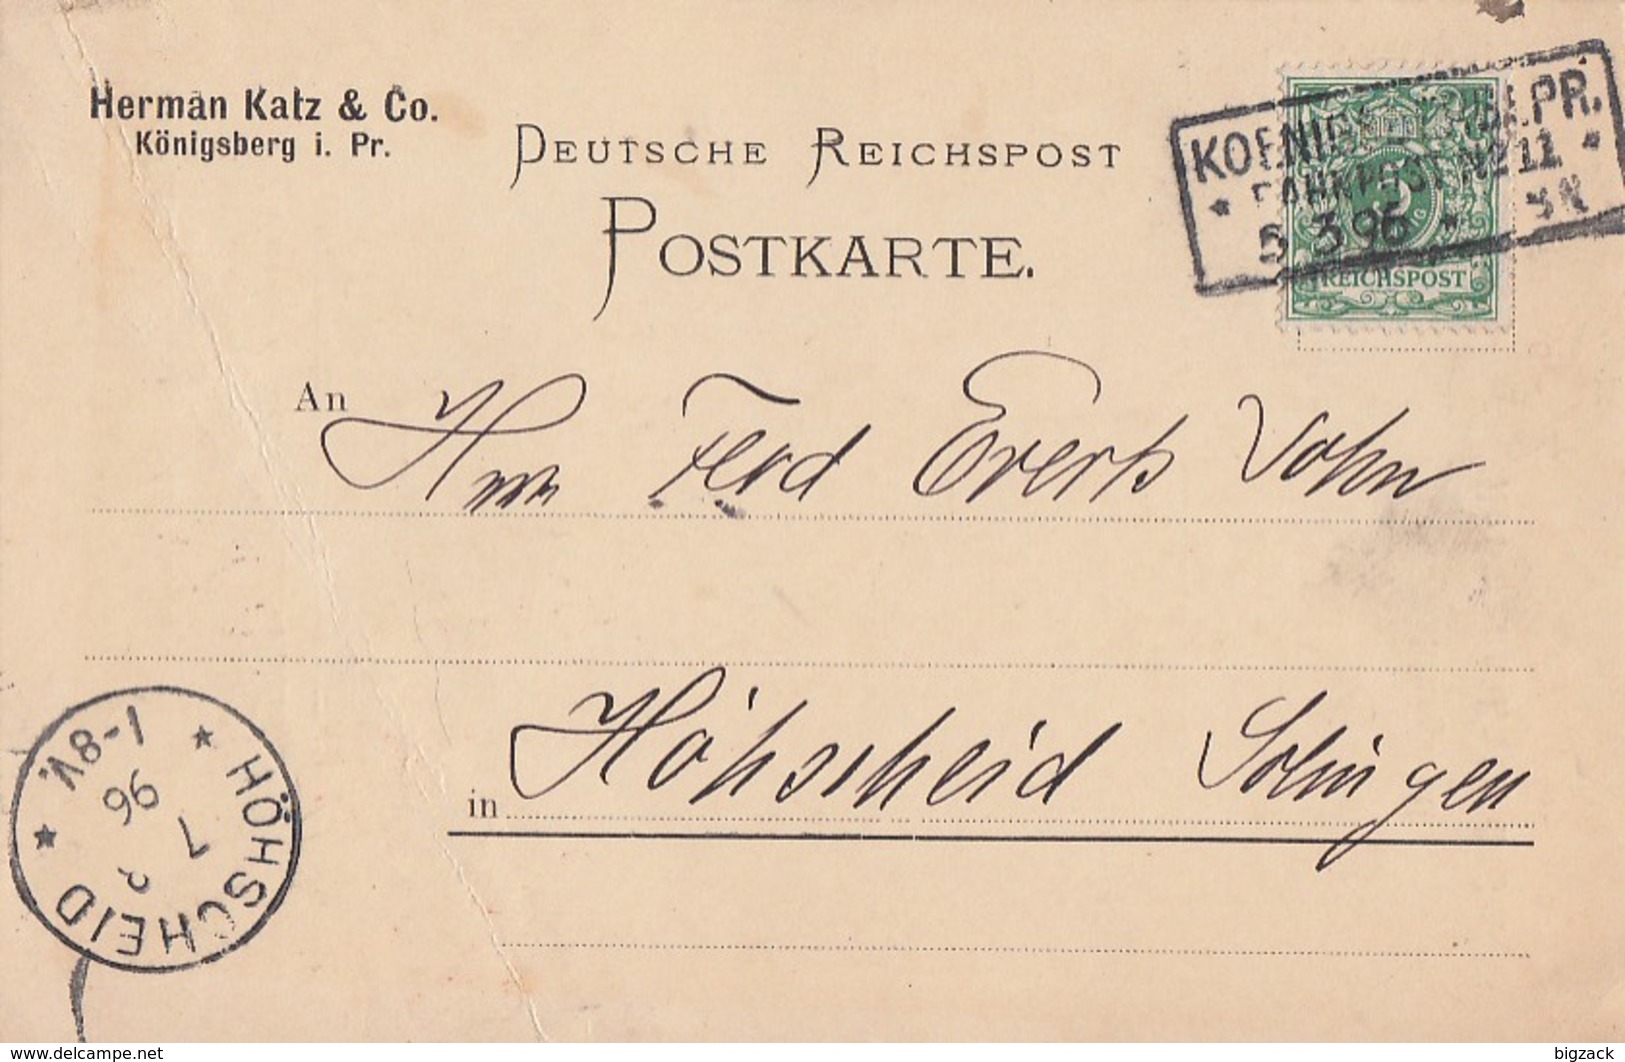 Herman Katz & Co.
Königsberg i. Pr.
DEUTSCHE REICHSPOST
POSTKARTE.
PR.
BAHNPOST No 11
5 3 96
REICHSPOST
An Herrn Ferd Everts Sohn
in Höhscheid Solingen
HÖHSCHEID
7 3
96
8-1 V.
www.delcampe.net
bigzack